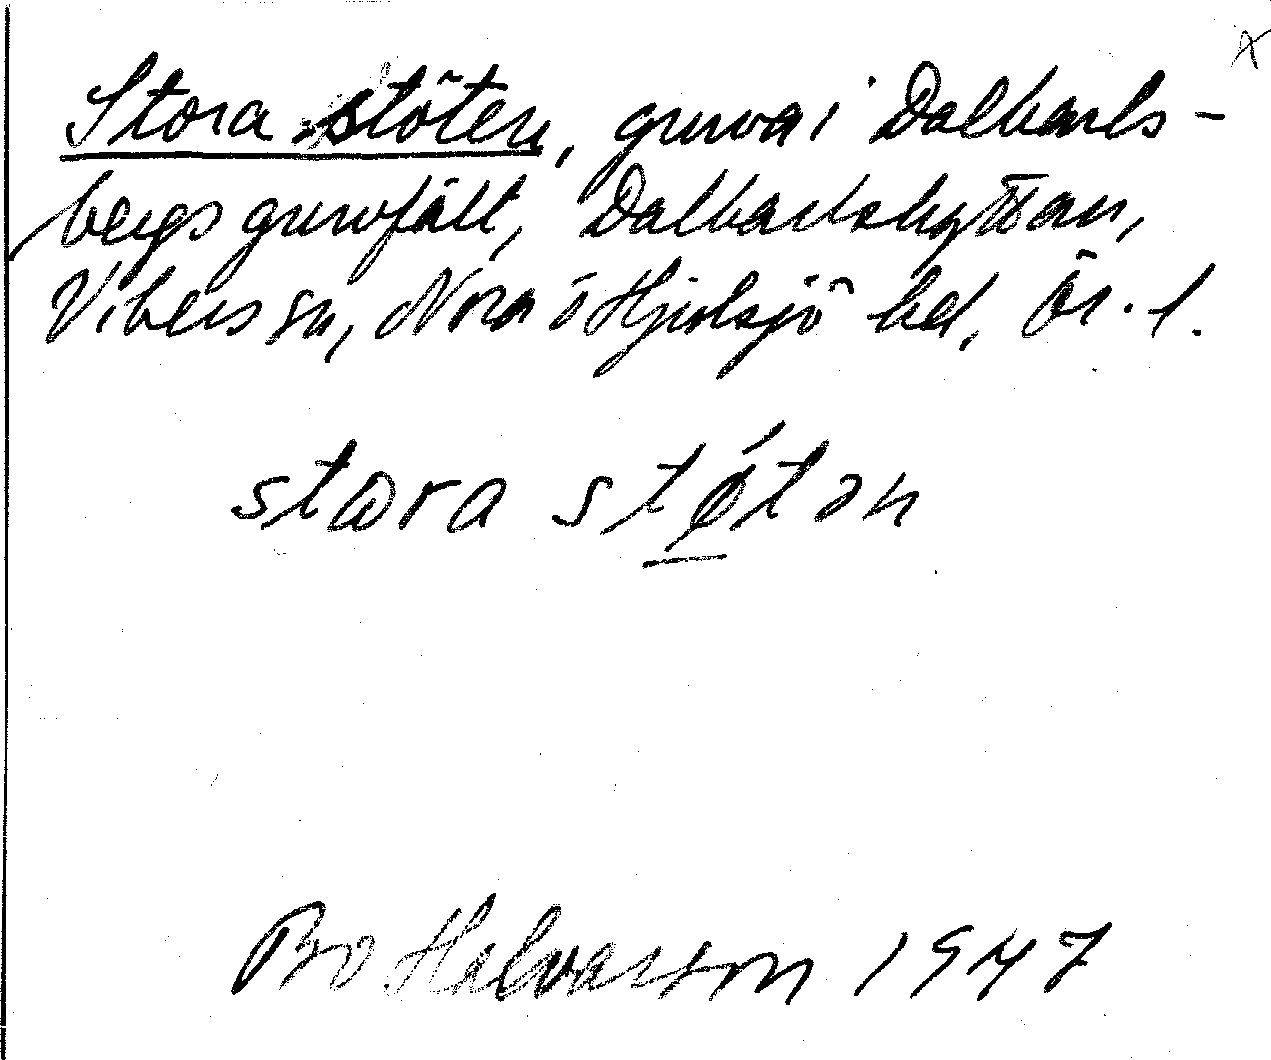 X
Stora stöten, gruva i Dalkarls-
bergs gruvfält, Dalkarlshyttan,
Vikers sn, Nora o Hjulsjö hd, Ör. l.
stɷra stǿtən
Bo Halvarson 1947